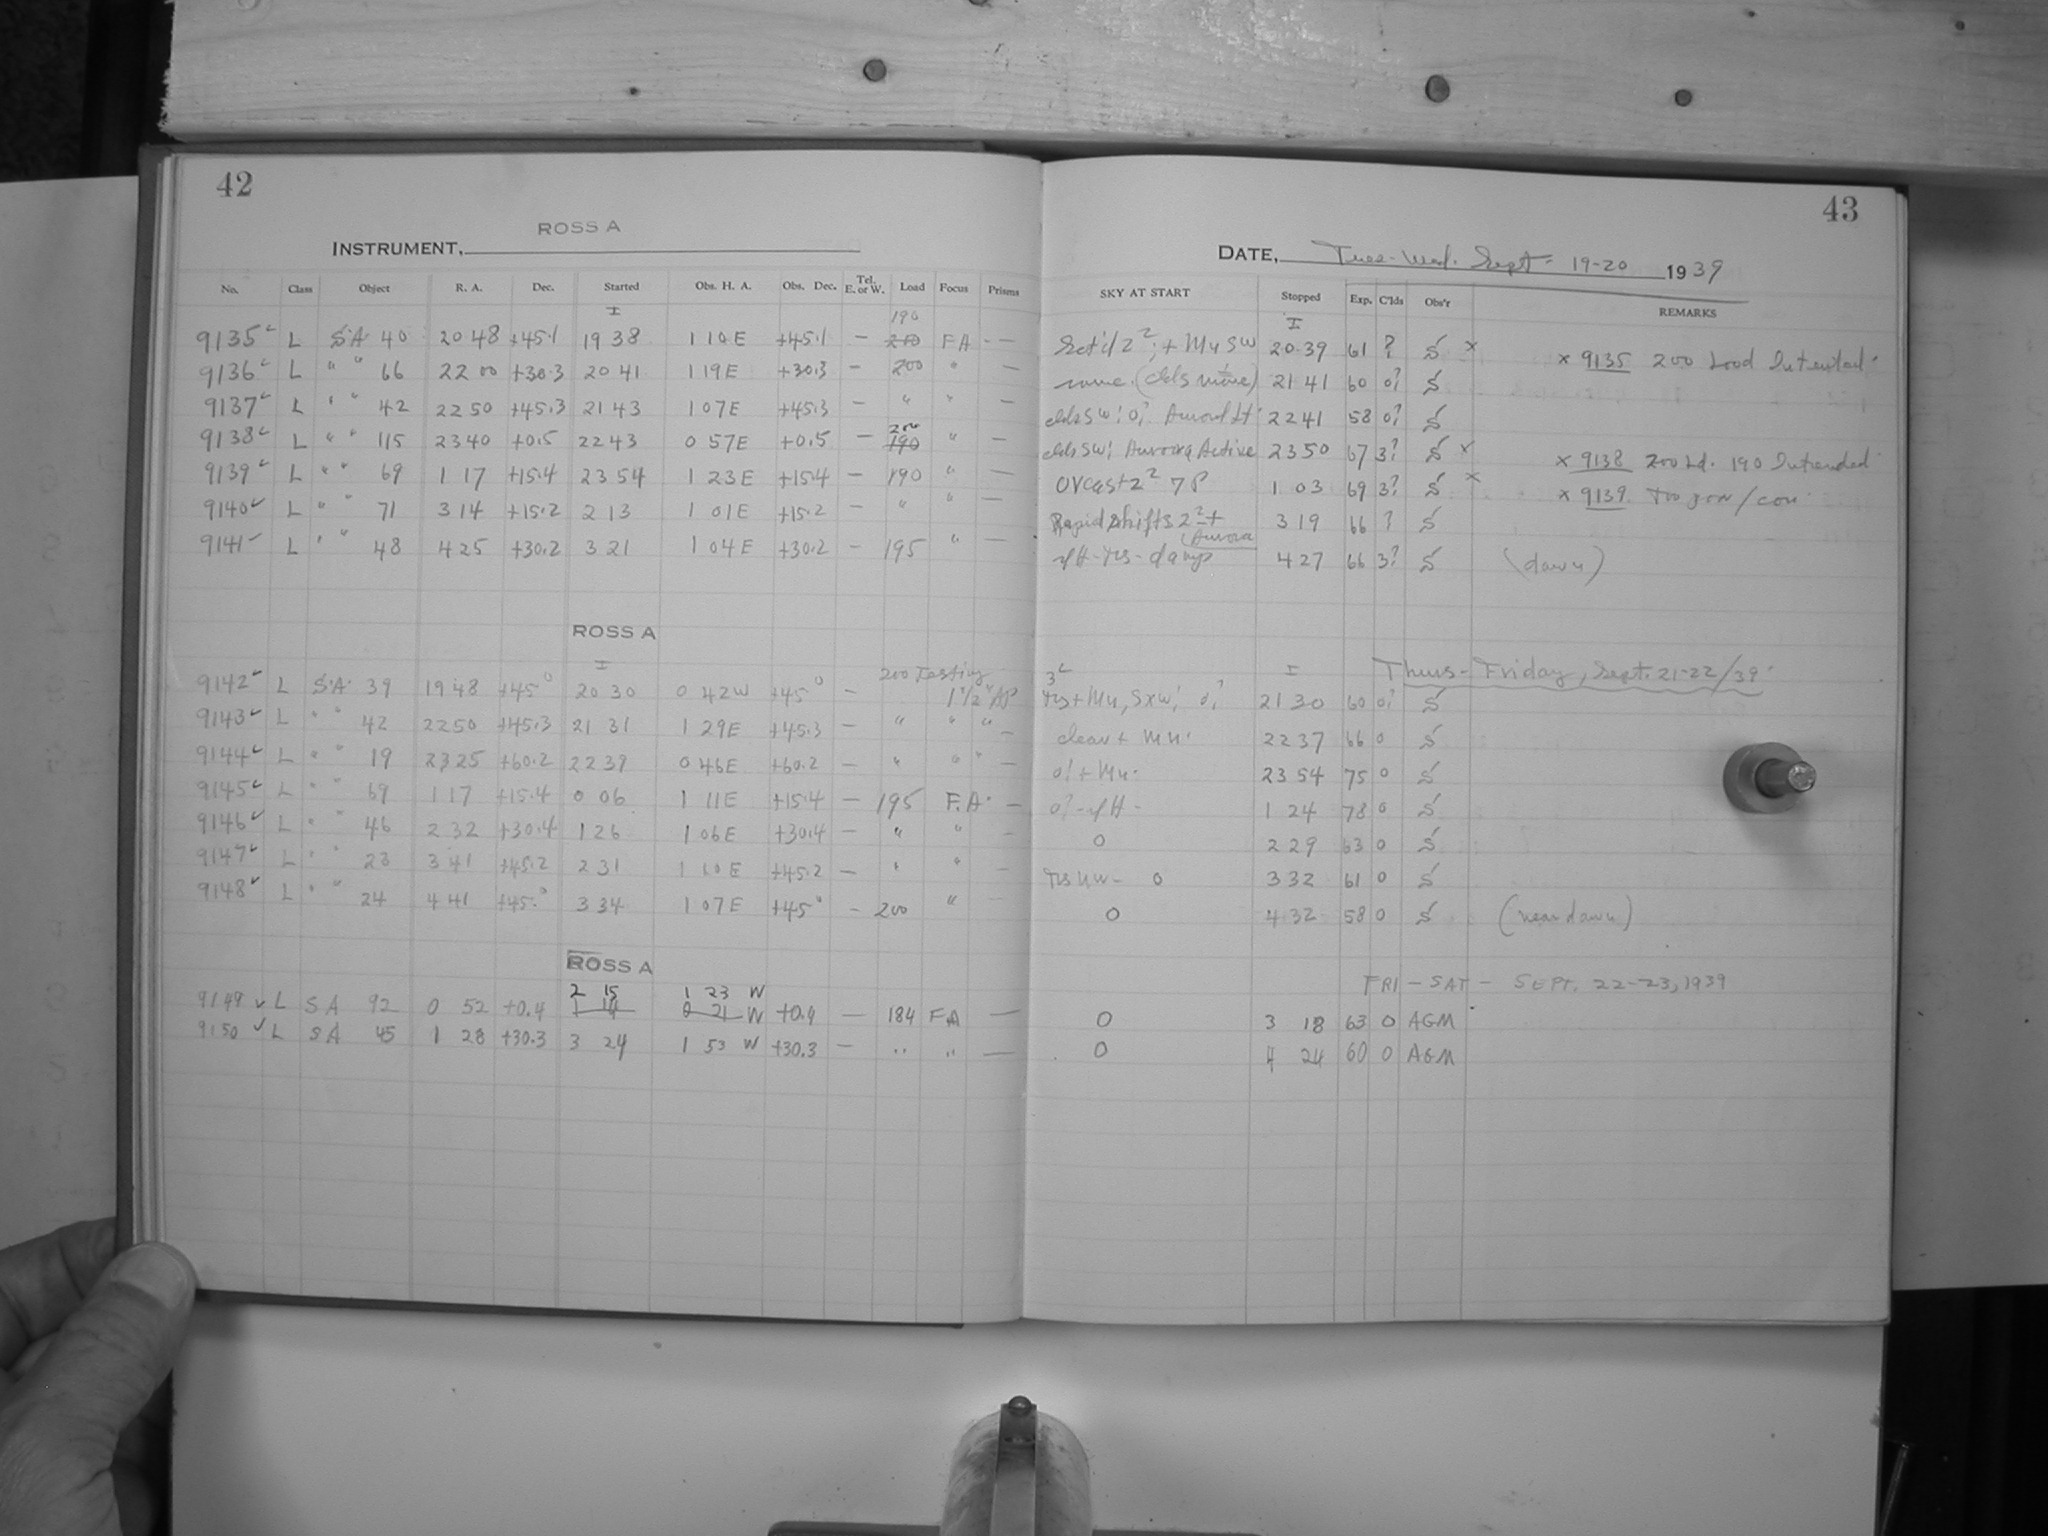 42
ROSS A
INSTRUMENT,
No. Class Object R. A. Dec. Started Obs. H. A. Obs. Dec. Tel. E. or W. Load Focus Prisms
I
190
9135 L SA 40 20 48 +45.1 19 38 1 10 E +45.1 — 210 FA —
9136 L " " 66 22 00 +30.3 20 41 1 19 E +30.3 — 200 " —
9137 L " " 42 22 50 +45.3 21 43 1 07 E +45.3 — " " —
200
9138 L " " 115 23 40 +0.5 22 43 0 57 E +0.5 — 190 " —
9139 L " " 69 1 17 +15.4 23 54 1 23 E +15.4 — 190 " —
9140 L " " 71 3 14 +15.2 2 13 1 01 E +15.2 — " " —
9141 L " " 48 4 25 +30.2 3 21 1 04 E +30.2 — 195 " —
ROSS A
I
200 Testing
9142 L SA 39 19 48 +45° 20 30 0 42 W +45° — 1 1/2" AP
9143 L " " 42 22 50 +45.3 21 31 1 29 E +45.3 — " " " —
9144 L " " 19 23 25 +60.2 22 39 0 46 E +60.2 — " " " —
9145 L " " 69 1 17 +15.4 0 06 1 11 E +15.4 — 195 F.A. —
9146 L " " 46 2 32 +30.4 1 26 1 06 E +30.4 — " " —
9147 L " " 23 3 41 +45.2 2 31 1 10 E +45.2 — " " —
9148 L " " 24 4 41 +45.° 3 34 1 07 E +45° — 200 " —
ROSS A
2 15 1 23 W
9149 L SA 92 0 52 +0.4 1 14 0 21 W +0.4 — 184 FA —
9150 L SA 45 1 28 +30.3 3 24 1 53 W +30.3 — " " —
43
DATE, Tues-Wed. Sept. 19-20 1939
SKY AT START Stopped Exp. C'lds Obs'r REMARKS
I
z², + Mn SW 20 39 61 ? S x x 9135 200 Load Intended
same. (clds move) 21 41 60 0? S
clds SW; 0? 22 41 58 0? S
clds SW; Aurora Active 23 50 67 3? S x x 9138 200 Ld. 190 Intended
Ovcast z² 7P 1 03 69 3? S x x 9139
Rapid shifts z²+ 3 19 66 ? S
(Aurora
damp 4 27 66 3? S (dawn)
I Thurs-Friday, Sept. 21-22/39.
+ Mn, SxW; 0? 21 30 60 0? S
clear + Mn. 22 37 66 0 S
0? + Mn. 23 54 75 0 S
0? 1 24 78 0 S
0 2 29 63 0 S
NW - 0 3 32 61 0 S
0 4 32 58 0 S (near dawn)
FRI - SAT - SEPT. 22-23, 1939
0 3 18 63 0 AGM
0 4 24 60 0 AGM